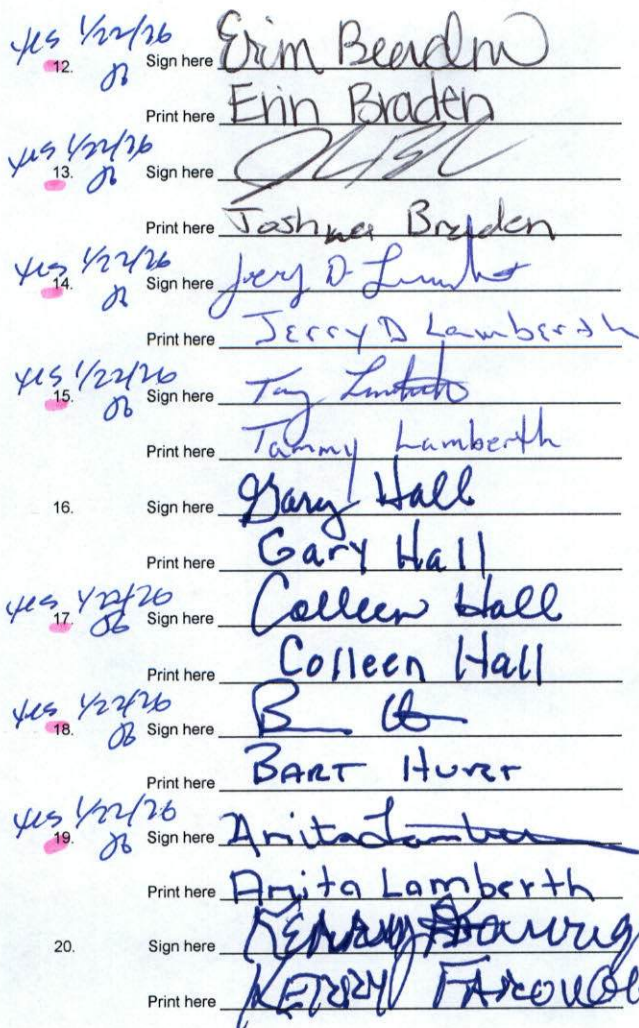 yes 1/22/26
12. Sign here Erin Braden
Print here Erin Braden
yes 1/22/26
13. Sign here
Print here Joshua Braden
yes 1/22/26
14. Sign here Jerry D Lamberth
Print here Jerry D Lamberth
yes 1/22/26
15. Sign here
Print here Tammy Lamberth
16. Sign here Gary Hall
Print here Gary Hall
yes 1/22/26
17. Sign here Colleen Hall
Print here Colleen Hall
yes 1/22/26
18. Sign here
Print here BART
yes 1/22/26
19. Sign here Anita Lamberth
Print here Anita Lamberth
20. Sign here
Print here KERRY